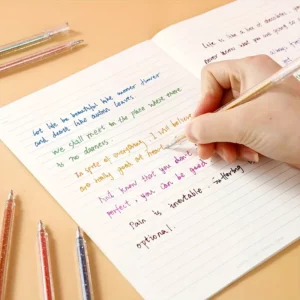 Let life be beautiful like summer flower
and death like autumn leaves
we shall meet in the place where there
is no darkness
In spite of everything I still believe
are really good at heart
And know that you don't
perfect, you can be good
Pain is inevitable. suffering
optional.
Life is like a box of chocolates
never know what you are going to